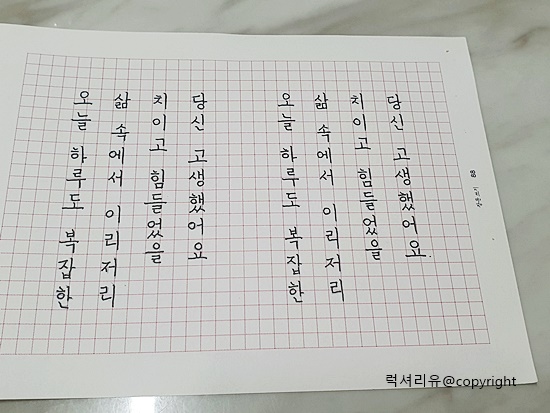 오늘 하루도 복잡한
삶 속에서 이리저리
치이고 힘들었을
당신 고생했어요
오늘 하루도 복잡한
삶 속에서 이리저리
치이고 힘들었을
당신 고생했어요.
88
럭셔리유@copyright